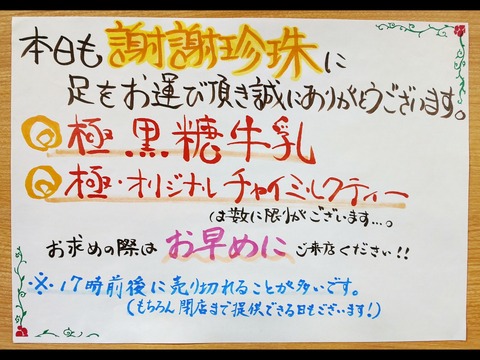 本日も謝謝珍珠に
足をお運び頂き誠にありがとうございます。
◎極 黒糖牛乳
◎極・オリジナルチャイミルクティー
は数に限りがございます…。
お求めの際はお早めにご来店ください!!
※17時前後に売り切れることが多いです。
(もちろん閉店まで提供できる日もございます!)